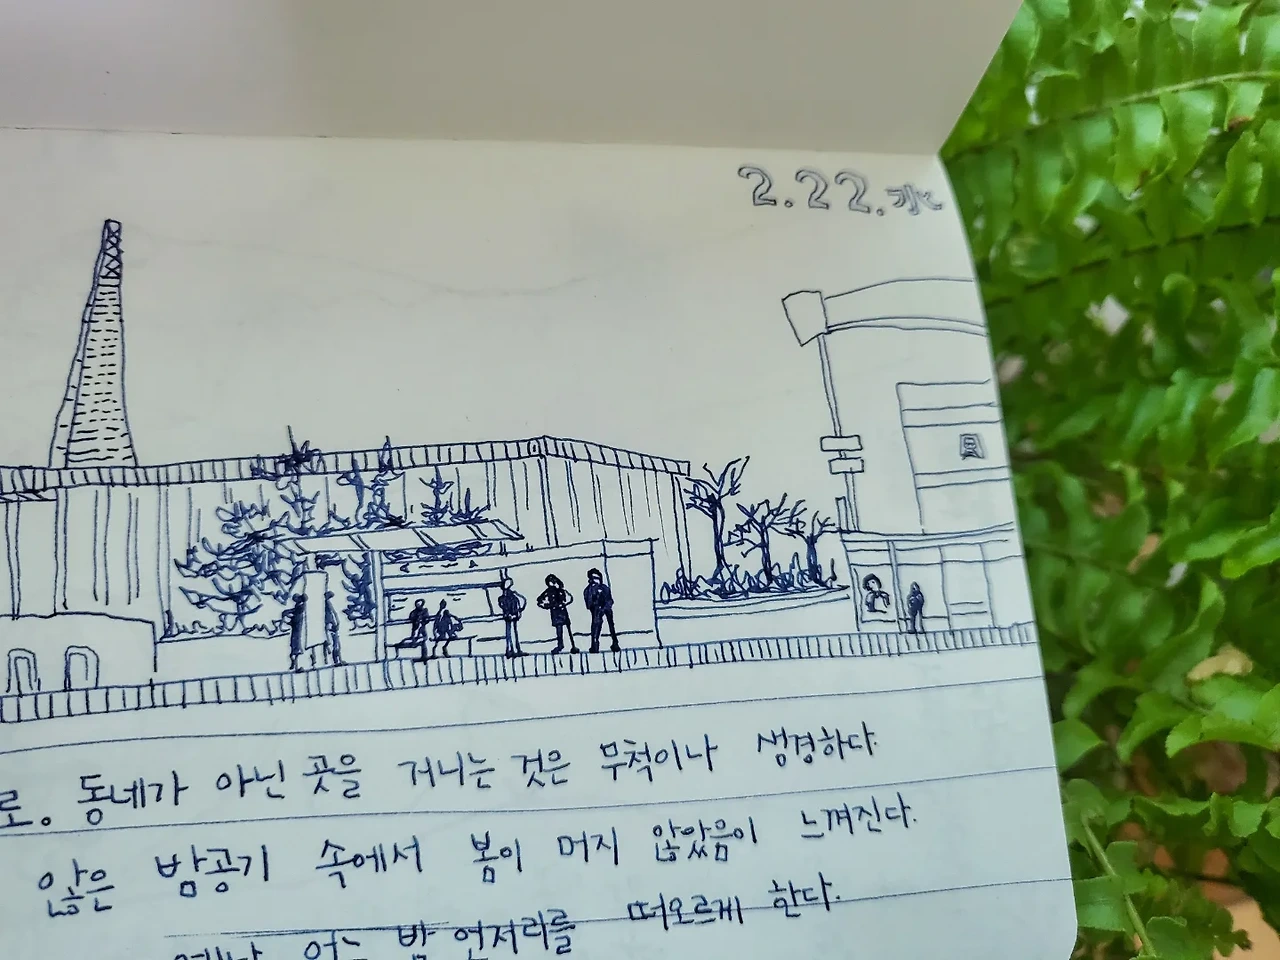 2.22.水
로. 동네가 아닌 곳을 거니는 것은 무척이나 생경하다.
않은 밤공기 속에서 봄이 머지 않았음이 느껴진다.
옛날 어느 밤 언저리를 떠오르게 한다.